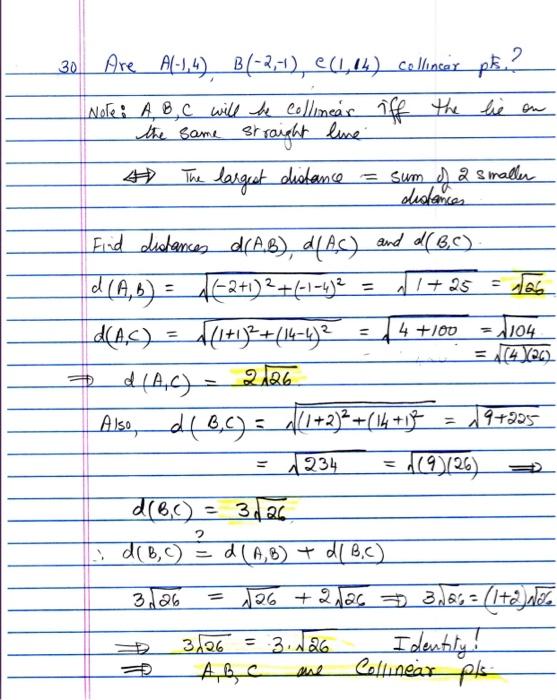 30 Are A(-1,4), B(-2,-1), C(1,14) collinear pts.?
Note: A, B, C will be collinear iff the lie on
the same straight line.
⇔ The largest distance = sum of 2 smaller
distances
Find distances d(A,B), d(A,C) and d(B,C).
d(A,B) = √((-2+1)²+(-1-4)²) = √(1+25) = √26
d(A,C) = √((1+1)²+(14-4)²) = √(4+100) = √104
= √((4)(26))
⇒ d(A,C) = 2√26
Also, d(B,C) = √((1+2)²+(14+1)²) = √(9+225)
= √234 = √((9)(26)) ⇒
d(B,C) = 3√26
?
∴ d(B,C) = d(A,B) + d(B,C)
3√26 = √26 + 2√26 ⇒ 3√26 = (1+2)√26
⇒ 3√26 = 3.√26 Identity!
⇒ A, B, C are Collinear pts.